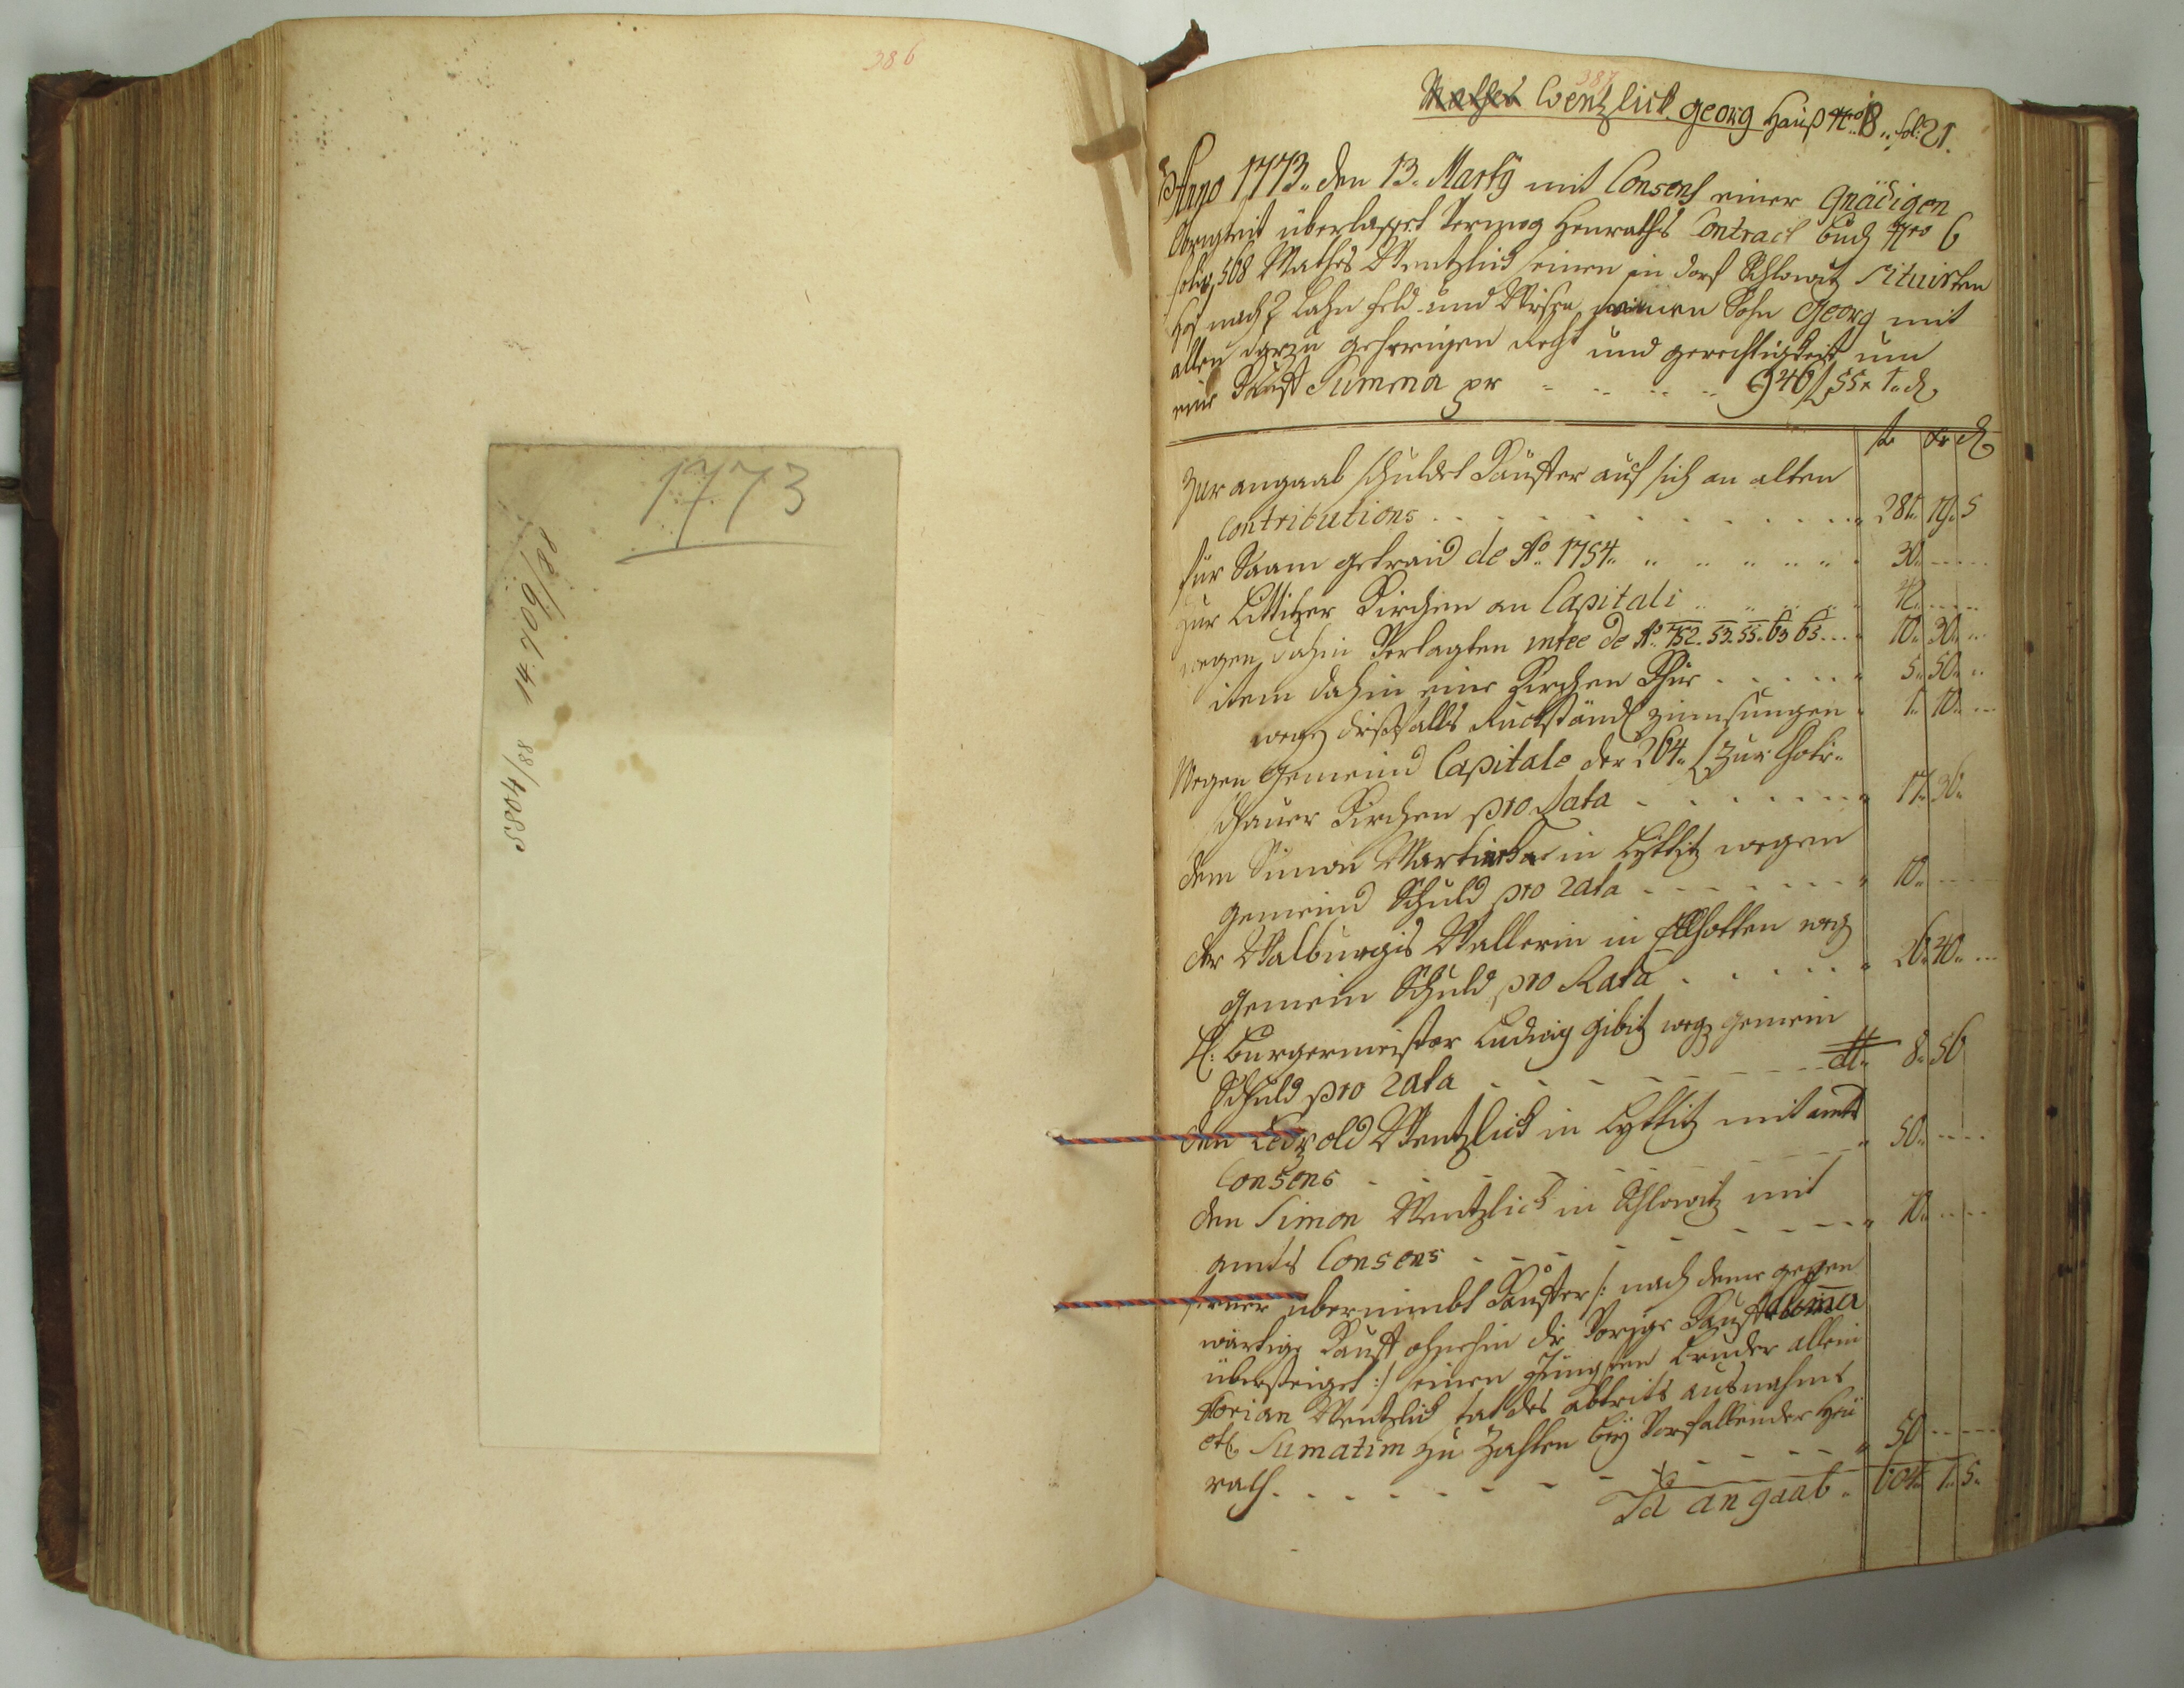 386
1773
14.709/88
5804/88
387
Mathes Wentzlick Georg Hauß Nro 18 .. fol: 21.
Anno 1773. den 13. Marty mit Consens einer Gnädigen
Obrigkeit überlasset Vermög Heuraths Contract Buch Nro 6
folio 568 Mathes Wentzlick seinen in dorf Schlowitz situirten
Hof nach Lahn Feld und Wiesen seinen Sohn Georg mit
allen darzu gehörigen Recht und gerechtigkeit um
eine Kauff Summa pr 946 f 55 x 1 d
f xr d
Zur angaab schuldet Käuffer auf sich an alten
contributions 281 19 5
für Saam getraid de Ao 1754 30
zur Littitzer Kirchen an Capitali 42
wegen dahin Vertagten intee de Ao 752. 53. 55. 63 65 10 30
item dahin eine Kirchen Kuhe 5 50
wegen dießfalls Ruckständ zinnsungen 1 10
Wegen Gemeind Capitale der 264 f zur Chotie-
schauer Kirchen pro Rata 17 36
dem Simon in Lyttitz wegen
gemeind Schuld pro rata 10
der Walburgis Wallerin in Ellhotten weg
gemein Schuld pro Rata 26 40
H: Burgermeister Ludwig Gibitz weg gemein
Schuld pro rata 8 56
den Leopold Wentzlick in Lyttitz mit amts
Consens 50
den Simon Wentzlick in Schlowitz mit
amts Consens 70
ferner übernimbt Käuffer /: nach deme gegen
wärtige Kauff ohnehin die Vorige Kauff Suma
übersteiget :/ seinen Jüngsten Bruder allein
Florian Wentzlick statt des abtritts ausnahms
Sumatim zu Zahlen bey Vorfallender Heu
rath 50
Sa angaab 604 1 5